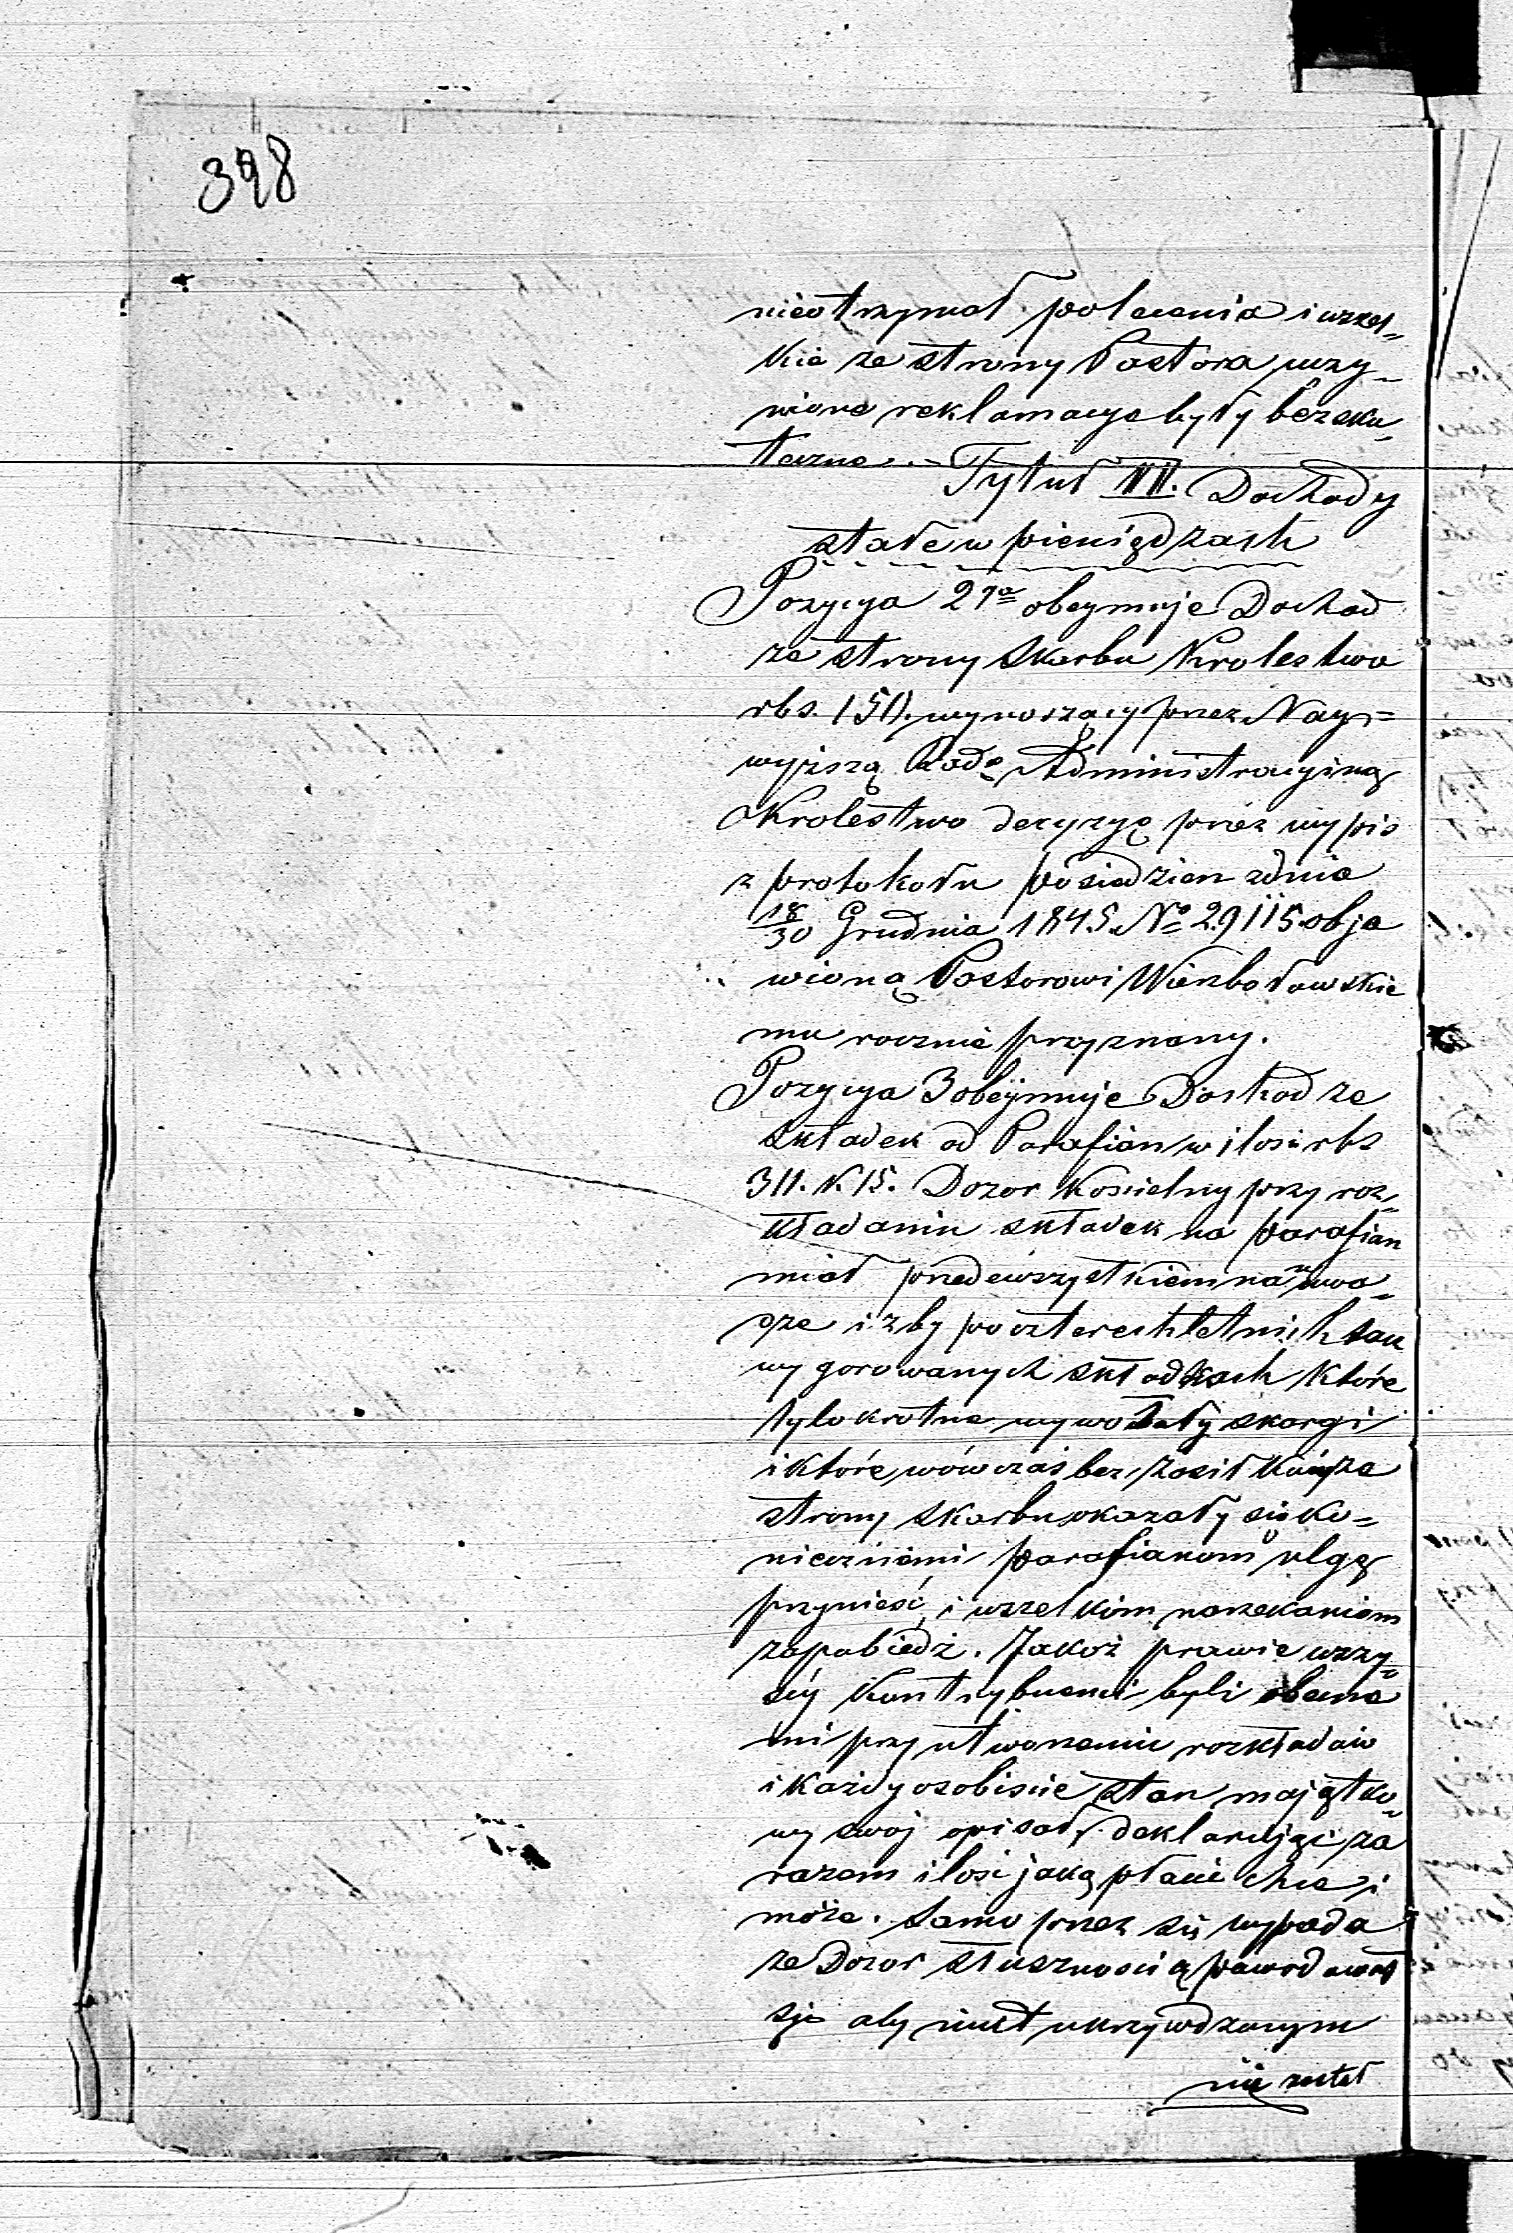 398
nieotrzymał polecenia i wszel„
kie ze strony Pastora uczy„
nione reklamacye były bezsku„
teczne. – Tytuł III. Dochody
stałe w pieniędzach
Pozycya 2ga obeymuje Dochod
ze strony Skarbu Krolestwa
rbs. 150. wynoszący przez Nay=
wyższą Radę Administracyjną
Krolestwa decyzyę przez wypis
z protokołu posiedzien zdnia
18/30 Grudnia 1845 No 29115 obja
wioną Pastorowi Wierzbołowskie
mu rocznie przyznany.
Pozycya 3 obejmuje Dochod ze
składek od Parafian w ilosci rbs
311. k 15. Dozor Koscielny przy roz„
kładaniu składek na parafian
miał przedewszystkiem na uwa„
dze izby po czterechletnich tak
wygorowanych składkach które
tylokrotne wywołały skargi
i które wówczas bez zasiłku ze
strony skarbu okazały się ko„
niecznemi parafianom ulgę
przynieść i wszelkim narzekaniom
zapobiedz. Jakoż prawie wszy„
scy Kontrybuenci byli obecne
mi przy utworzeniu rozkładów
i każdy osobiscie stan majątko„
wy swoj opisał, deklarując za
razem ilosc jaką płacic chce i
może. Samo przez się wypada
ze Dozor słusznoscią powodował
się aby nikt ukrzywdzonym
nie został